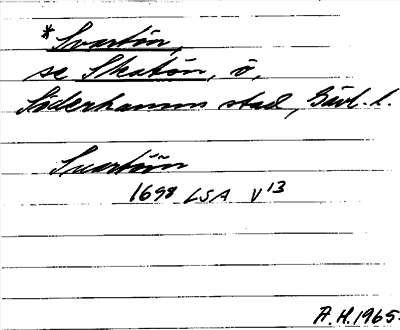 *Svartön,
se Skatön, ö,
Söderhamns stad, Gävl. l.
Svartöön
1698 LSA V 13
A.H. 1965.